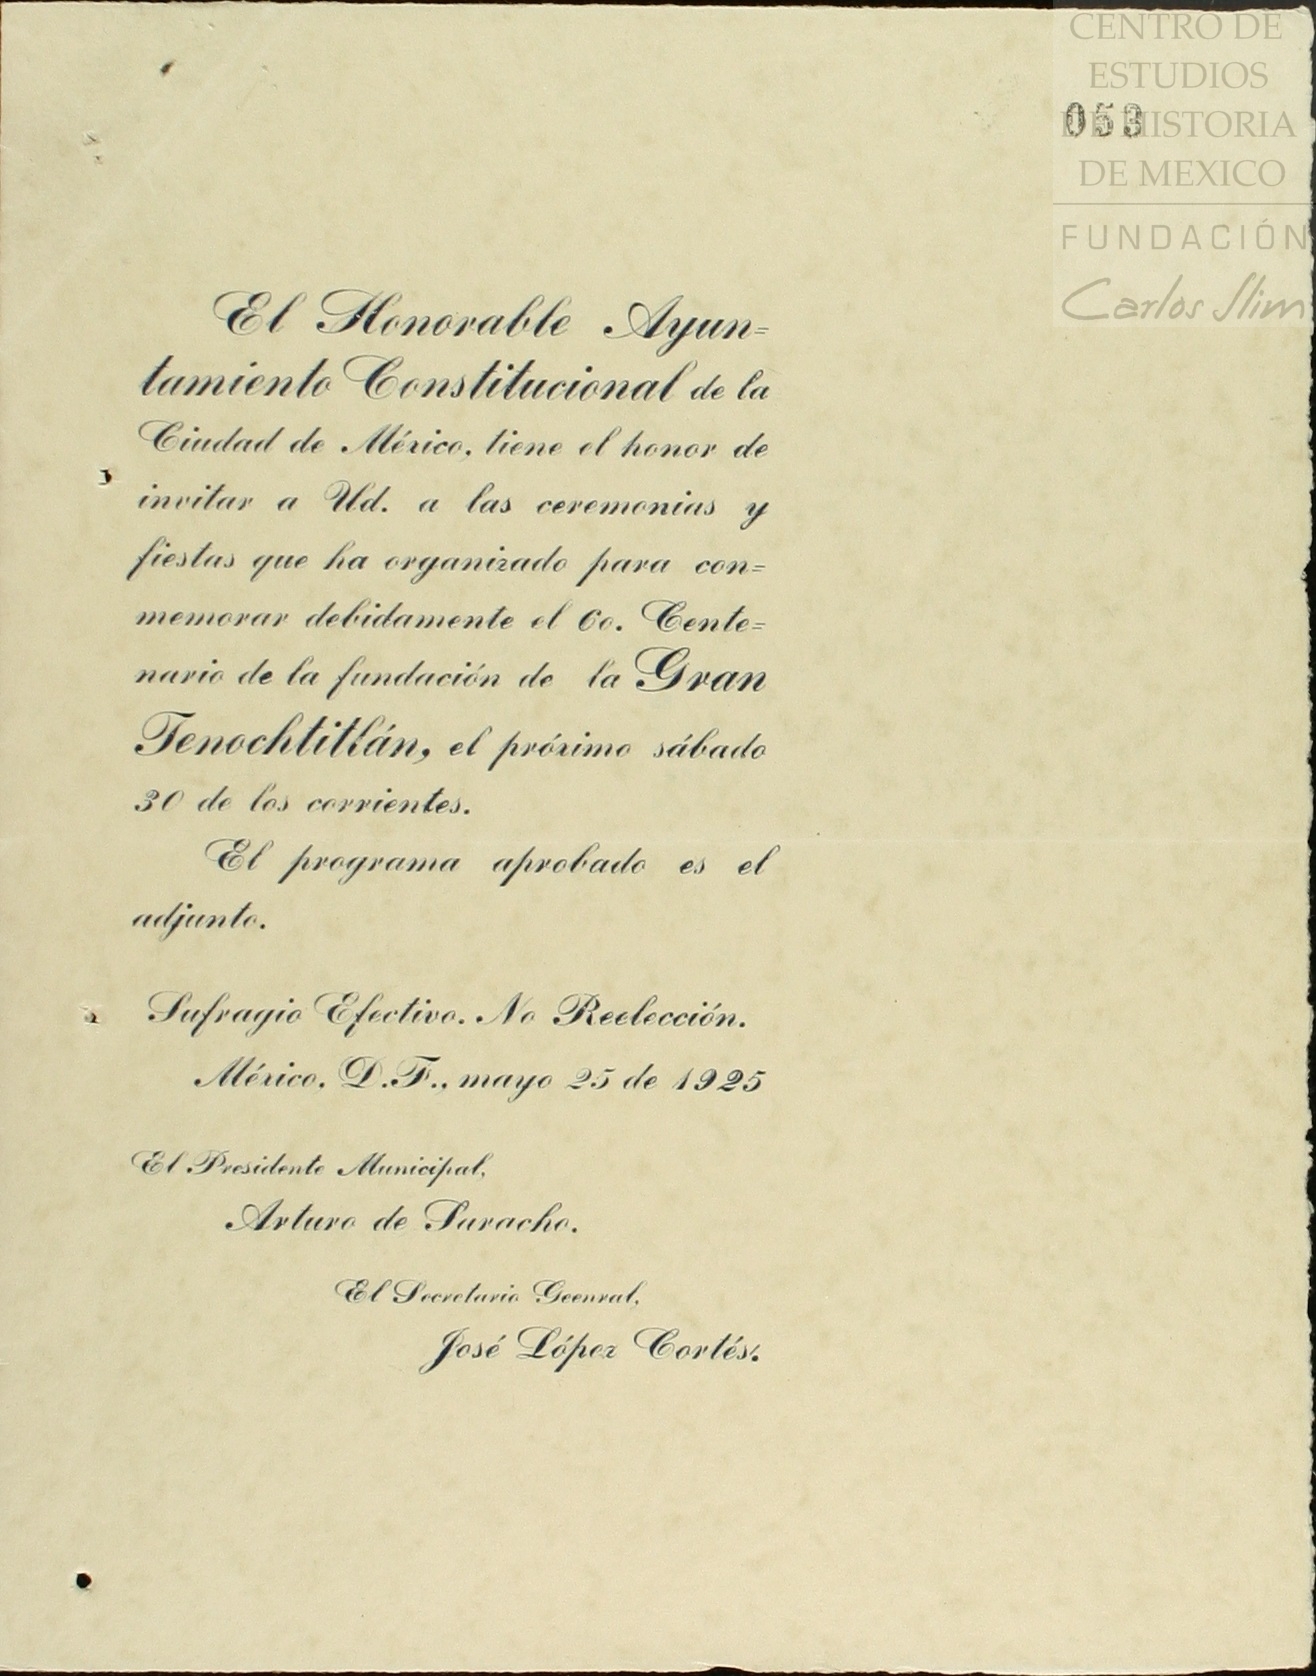 CENTRO DE
ESTUDIOS
DE HISTORIA
DE MEXICO
053
FUNDACIÓN
Carlos Slim
El Honorable Ayun=
tamiento Constitucional de la
Ciudad de México, tiene el honor de
invitar a Ud. a las ceremonias y
fiestas que ha organizado para con=
memorar debidamente el 6o. Cente=
nario de la fundación de la Gran
Tenochtitlán, el próximo sábado
30 de los corrientes.
El programa aprobado es el
adjunto.
Sufragio Efectivo. No Reelección.
México. D.F., mayo 25 de 1925
El Presidente Municipal,
Arturo de Saracho.
El Secretario Geenral,
José López Cortés.